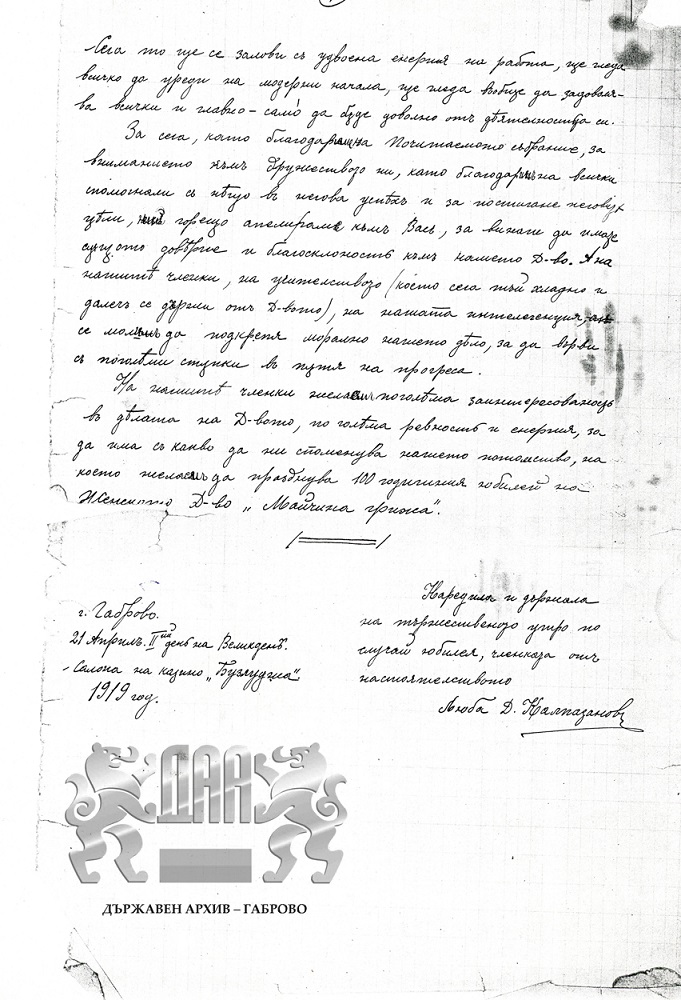 Сега то ще се залови съ удвоена енергия на работа, ще гледа
всичко да уреди на модерни начала, ще гледа въобще да задоволя-
ва всички и главно - само да бѫде доволно отъ дѣятелностьта си.
За сега, като благодарна Почитаемото събрание, за
вниманието къмъ Дружеството ни, като благодарна всички
спомогнали съ нѣщо въ негова успѣхъ и за постигане неговитѣ
цѣли, горещо апелирамъ къмъ Васъ, за винаги да имаме
сѫщото довѣрие и благосклоность къмъ нашето Д-во. А на
нашитѣ членки, на учителството (което сега тъй хладно и
далечъ се държи отъ Д-вото), на нашата интелегенция,
се моля да подкрепя морално нашето дѣло, за да върви
съ поголѣми стѫпки въ пѫтя на прогреса.
На нашитѣ членки желая поголѣма заинтересованость
въ дѣлата на Д-вото, по голѣма ревность и енергия, за
да има съ какво да ни споменува нашето потомство, на
което желая да празднува 100 годишния юбилей на
Женското Д-во „Майчина грижа“.
г. Габрово.
21 Априлъ. II ий день на Великдень.
Салона на казино „Бузлуджа“
1919 год.
Наредила и държала
на тържественото утро по
случай юбилея, членката отъ
настоятелството
Люба Д. Калпазанова
ДАА
ДЪРЖАВЕН АРХИВ – ГАБРОВО